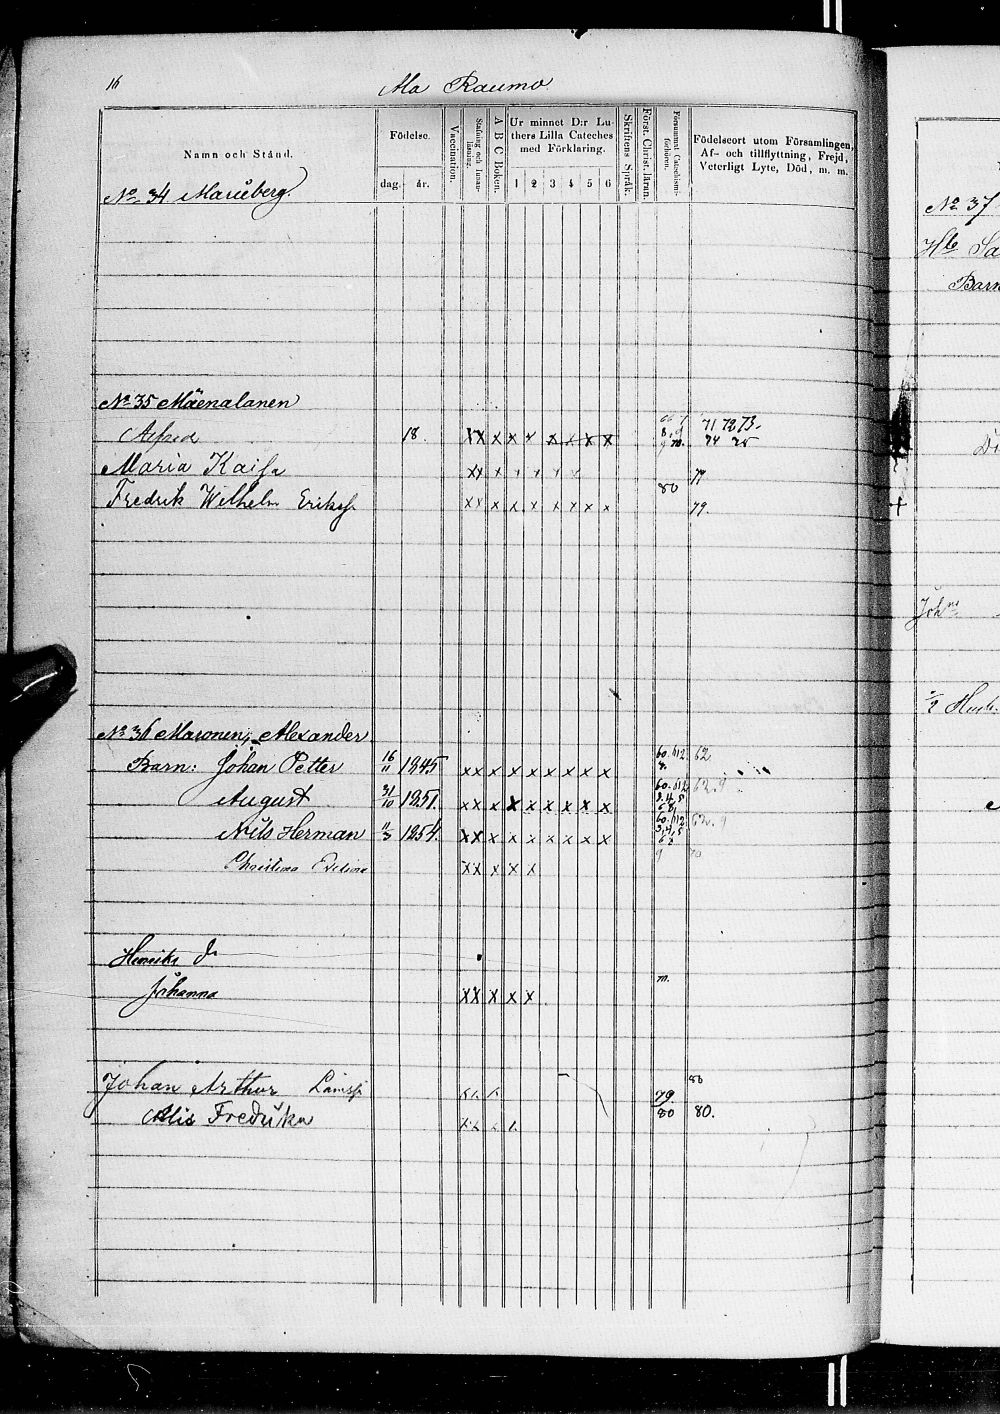 16
Ala Raumo
Namn och Stånd.
Födelse.
dag. år.
Vaccination.
Stafning och Innanläsning.
A B C Boken.
Ur minnet D:r Luthers Lilla Cateches med Förklaring.
1 2 3 4 5 6
Skriftens Språk.
Först. Christ. läran.
Försummt Catechismiförhören.
Födelseort utom Församlingen,
Af- och tillflyttning, Frejd,
Veterligt Lyte, Död, m. m.
No 34 Mariäberg
No 35 Mäenalanen
Alfred 18. XX X X X X X X X 71 72 73.
74 75
Maria Kaisa XX X X X X X X 79
80
Fredrik Wilhelm Eriksf XX X X X X X X X 79.
No 36 Maronen, Alexander
Barn: Johan Petter 16/11 1845 XX X X X X X X X 62
August 31/10 1851. XX X X X X X X X 62. 9
Nils Herman 11/3 1854. XX X X X X X X X 62. 9
Christina XX X X X 9 70
Henriks dr
Johanna XX X X X m.
Johan Arthur 79. 80
Alis Fredrika 80 80.
No 37
Hb Sa
Barn
Di
+
Joh
1/2 Hust.